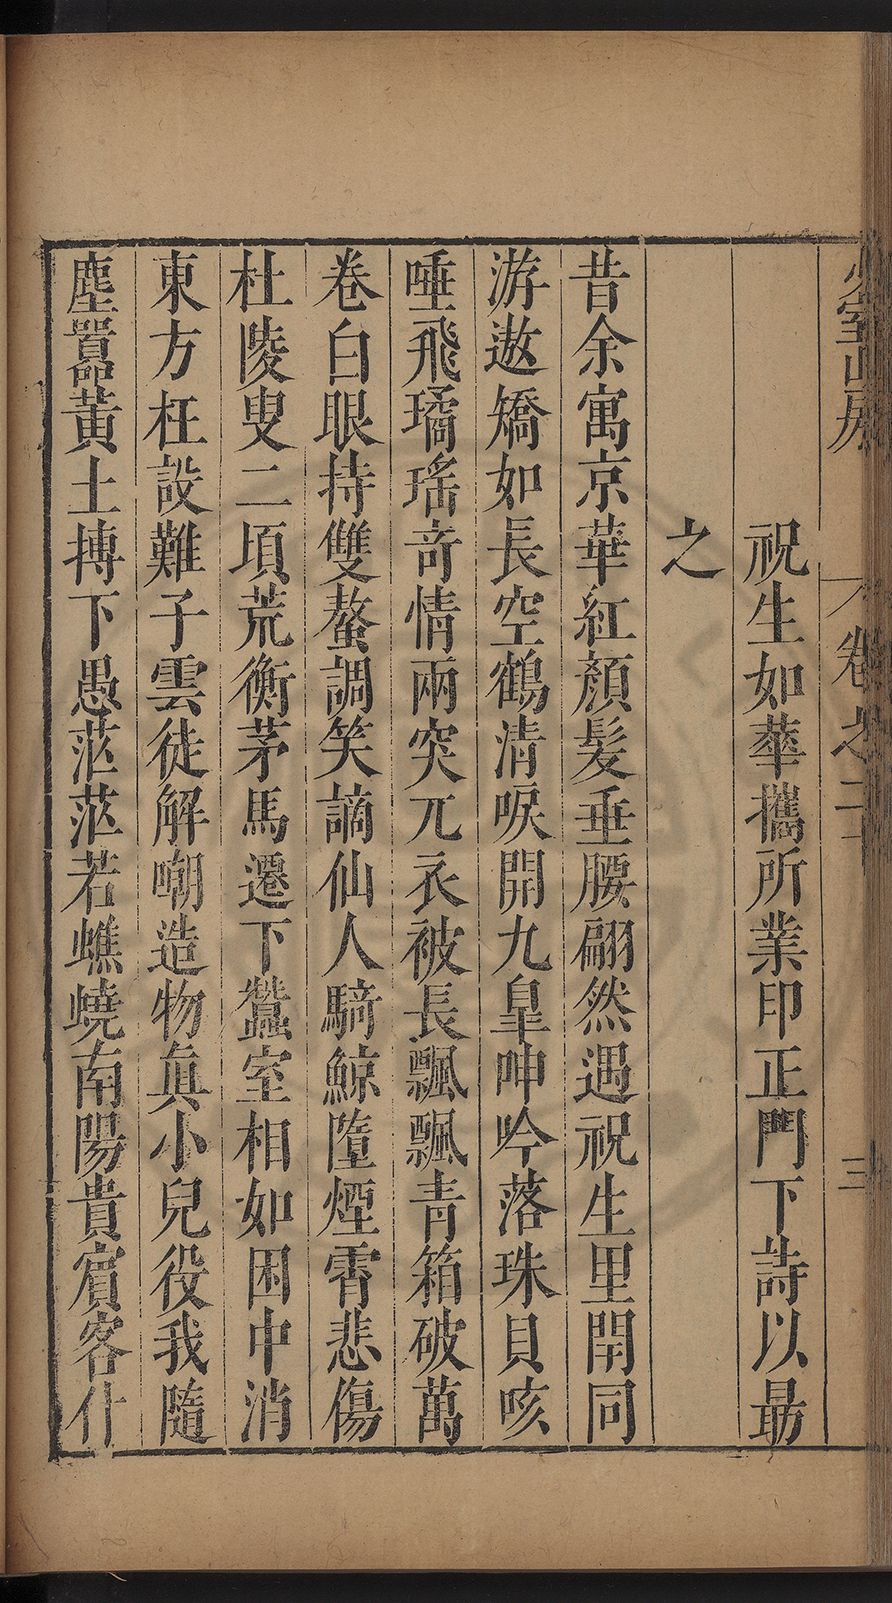 少室山房
卷之二十
三
祝生如華攜所業印正門下詩以最
之
昔余寓京華紅顏髮垂腰翩然遇祝生里閈同
游遨矯如長空鶴清唳開九皐呻吟落珠貝咳
唾飛璚瑤奇情兩突兀衣被長飄飄青箱破萬
卷白眼持雙螯調笑謫仙人騎鯨墮煙霄悲傷
杜陵叟二頃荒衡茅馬遷下蠶室相如困中消
東方枉設難子雲徒解嘲造物眞小兒役我隨
塵囂黃土摶下愚茫茫若蟭蟯南陽貴賓客什